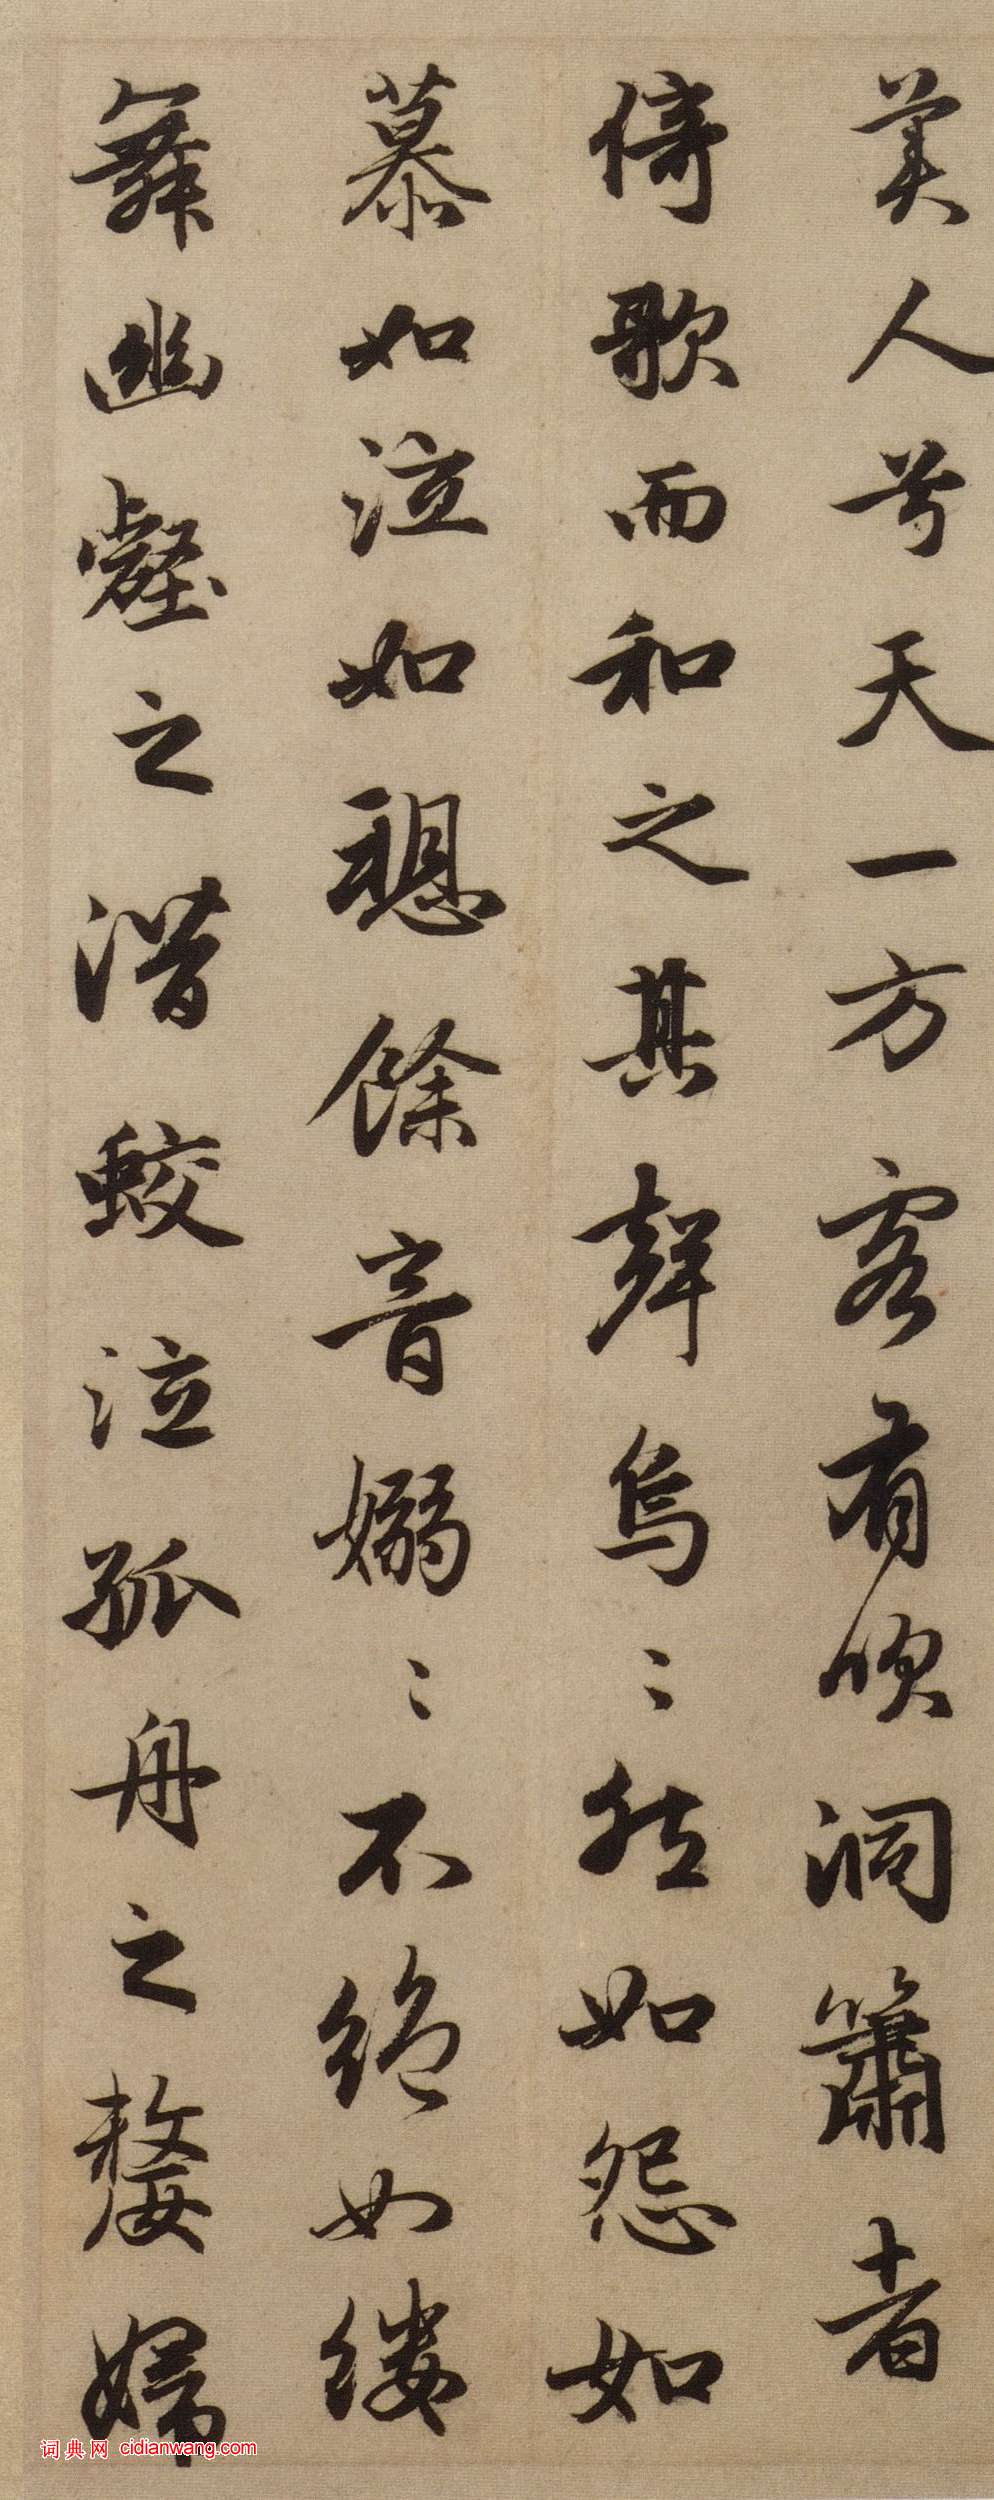 美人兮天一方客有吹洞簫者
倚歌而和之其聲烏〻然如怨如
慕如泣如愬餘音嫋〻不絕如縷
舞幽壑之潛蛟泣孤舟之嫠婦
词典网 cidianwang.com